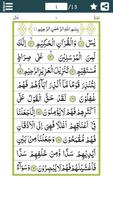 1 /13
بِسْمِ اللّٰهِ الرَّحْمٰنِ الرَّحِيْمِ
يٰسٓ ۚ وَالْقُرْاٰنِ الْحَكِيْمِ ۙ اِنَّكَ
لَمِنَ الْمُرْسَلِيْنَ ۙ عَلٰى صِرَاطٍ
مُّسْتَقِيْمٍ ؕ تَنْزِيْلَ الْعَزِيْزِ
الرَّحِيْمِ ۙ لِتُنْذِرَ قَوْمًا
مَّاۤ اُنْذِرَ اٰبَآؤُهُمْ فَهُمْ
غٰفِلُوْنَ لَقَدْ حَقَّ الْقَوْلُ
عَلٰٓى اَكْثَرِهِمْ فَهُمْ لَا
يُؤْمِنُوْنَ اِنَّا جَعَلْنَا
فِيْٓ اَعْنَاقِهِمْ اَغْلٰلًا فَهِيَ
اِلَى الْاَذْقَانِ فَهُمْ
مُّقْمَحُوْنَ وَجَعَلْنَا
مِنْ بَيْنِ اَيْدِيْهِمْ سَدًّا
وَّمِنْ خَلْفِهِمْ سَدًّا